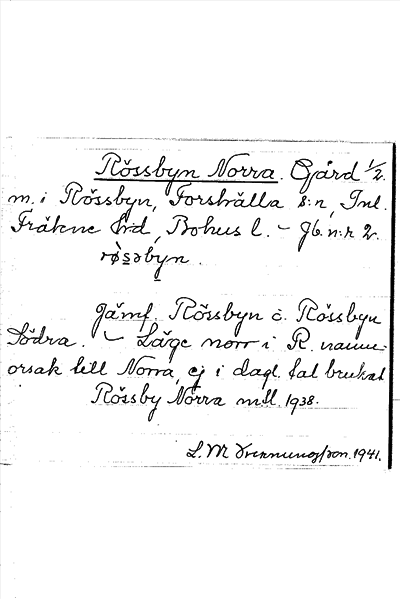 Rössbyn Norra. Gård 1/2.
m. i Rössbyn, Forshälla s:n, Inl.
Fräkne hrd, Bohus l. – Jb. n:r 2.
rø̀s̲əby̲n.
Jämf. Rössbyn o. Rössbyn
Södra. – Läge norr i R. namn-
orsak till Norra, ej i dagl. tal brukat
Rössby Norra mtl 1938.
L. M. 1941.